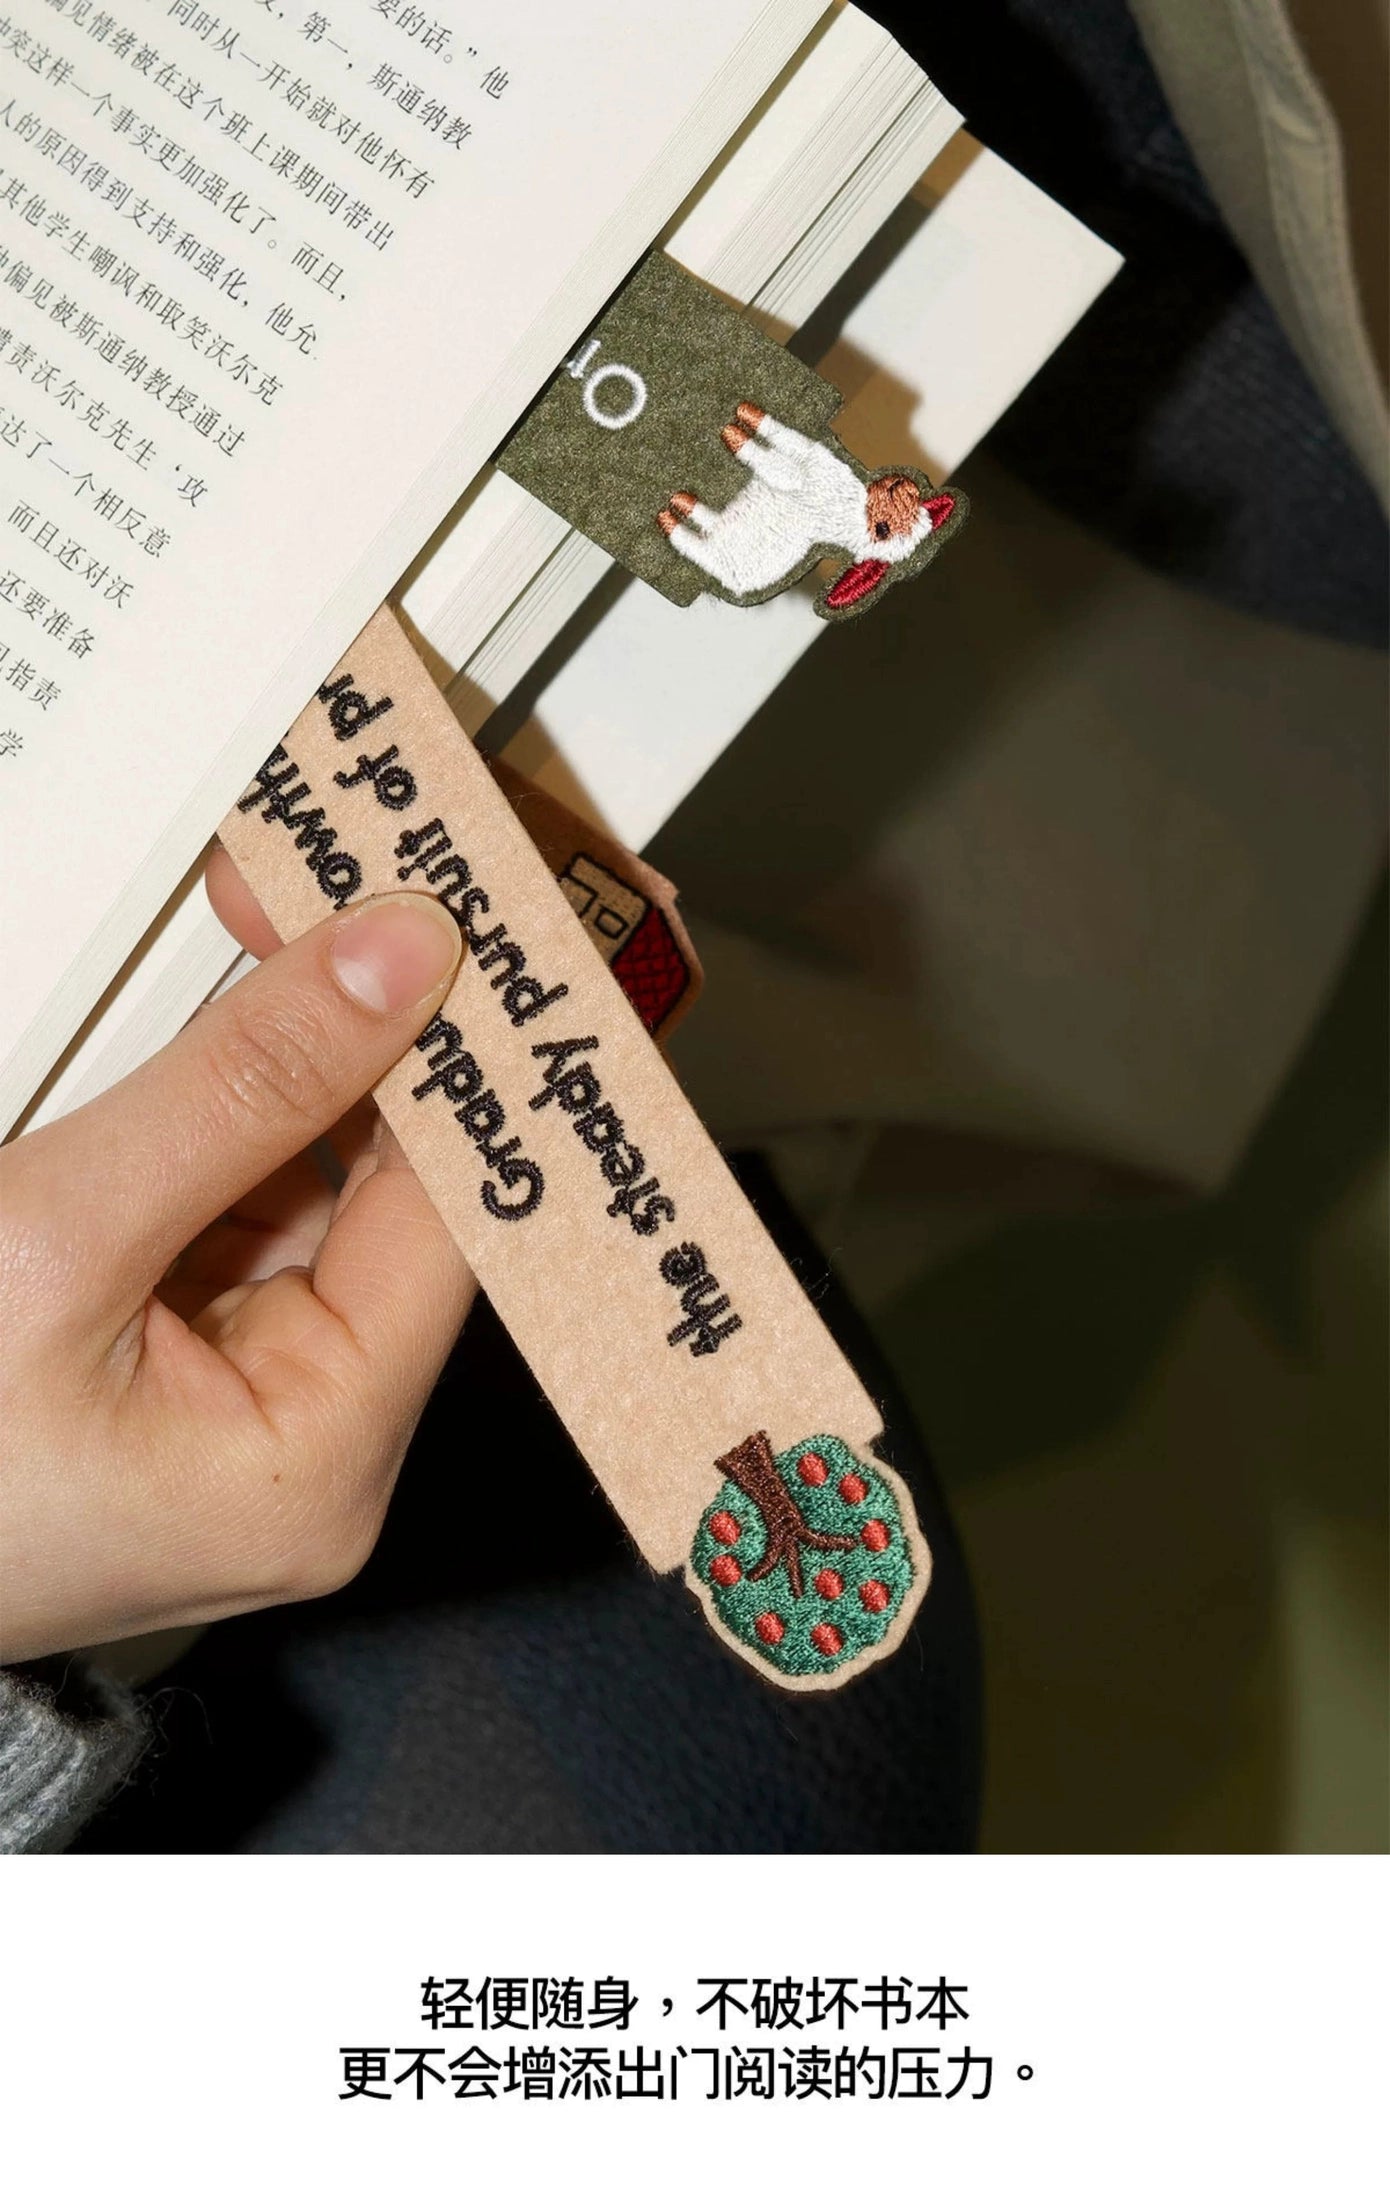 要的话。”他
第一，斯通纳教
同时从一开始就对他怀有
偏见情绪被在这个班上课期间带出
冲突这样一个事实更加强化了。而且，
人的原因得到支持和强化，他允
其他学生嘲讽和取笑沃尔克
偏见被斯通纳教授通过
责沃尔克先生‘攻
达了一个相反意
而且还对沃
还要准备
指责
学
the steady pursuit of pr
Gradu owth
轻便随身，不破坏书本
更不会增添出门阅读的压力。